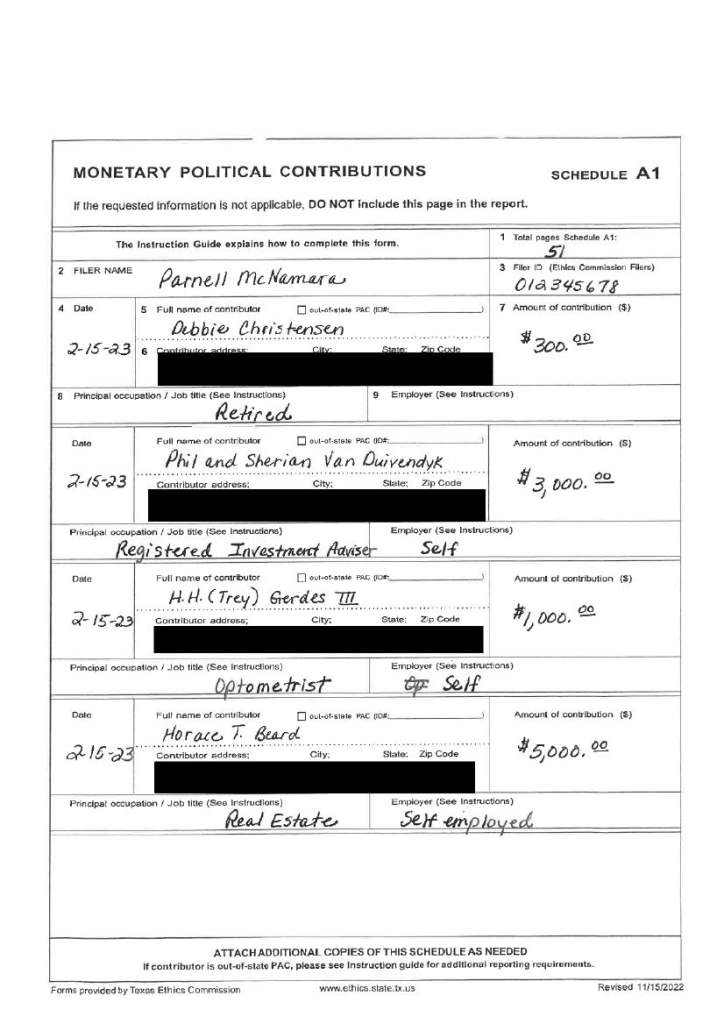 MONETARY POLITICAL CONTRIBUTIONS SCHEDULE A1
If the requested information is not applicable, DO NOT include this page in the report.
The Instruction Guide explains how to complete this form.
1 Total pages Schedule A1:
51
2 FILER NAME
Parnell McNamara
3 Filer ID (Ethics Commission Filers)
012345678
4 Date
2-15-23
5 Full name of contributor out-of-state PAC (ID#: )
Debbie Christensen
6 Contributor address; City; State; Zip Code
7 Amount of contribution ($)
$300.00
8 Principal occupation / Job title (See Instructions)
Retired
9 Employer (See Instructions)
Date
2-15-23
Full name of contributor out-of-state PAC (ID#: )
Phil and Sherian Van Duivendyk
Contributor address; City; State; Zip Code
Amount of contribution ($)
$3,000.00
Principal occupation / Job title (See Instructions)
Registered Investment Adviser
Employer (See Instructions)
Self
Date
2-15-23
Full name of contributor out-of-state PAC (ID#: )
H.H. (Trey) Gerdes III
Contributor address; City; State; Zip Code
Amount of contribution ($)
$1,000.00
Principal occupation / Job title (See Instructions)
Optometrist
Employer (See Instructions)
Self
Date
2-15-23
Full name of contributor out-of-state PAC (ID#: )
Horace T. Beard
Contributor address; City; State; Zip Code
Amount of contribution ($)
$5,000.00
Principal occupation / Job title (See Instructions)
Real Estate
Employer (See Instructions)
Self employed
ATTACH ADDITIONAL COPIES OF THIS SCHEDULE AS NEEDED
If contributor is out-of-state PAC, please see Instruction guide for additional reporting requirements.
Forms provided by Texas Ethics Commission www.ethics.state.tx.us Revised 11/15/2022